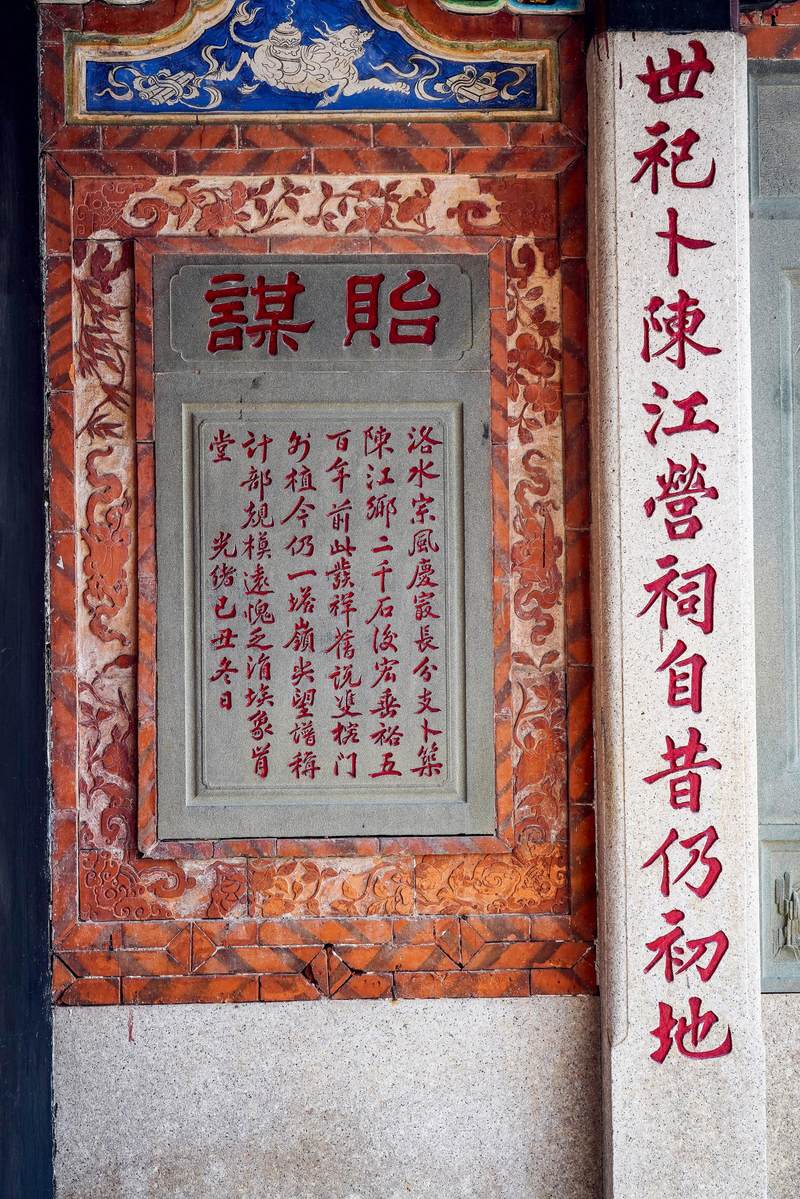 世祀卜陳江營祠自昔仍初地
貽謀
洛水宗風慶㝡長分支卜築
陳江鄉二千石後宏垂裕五
百年前此發祥舊說雙桅门
外植今仍一塔嶺尖望譜稱
計部規模遠愧乏涓埃象肯
堂 光緒己丑冬日